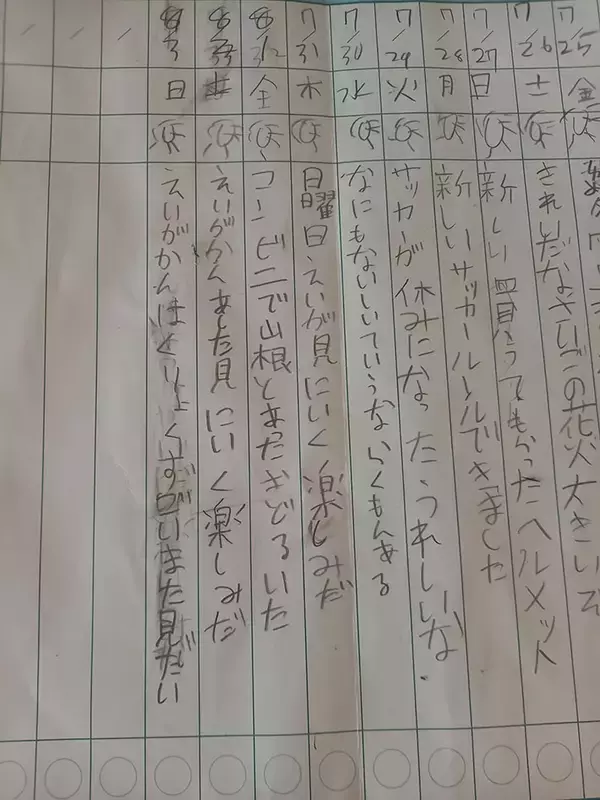 7/25 金
7/26 土 きれいだなさいごの花火大きいぞ
7/27 日 新しい買ってもらったヘルメット
7/28 月 新しいサッカールールできました
7/29 火 サッカーが休みになったうれしいな
7/30 水 なにもないしいていうならくもんある
7/31 木 日曜日えいが見にいく楽しみだ
8/2 金 コンビニで山根とあったおどろいた
8/3 えいがかんあした見にいく楽しみだ
8/3 日 えいがかんはくりょくすごいまた見たい